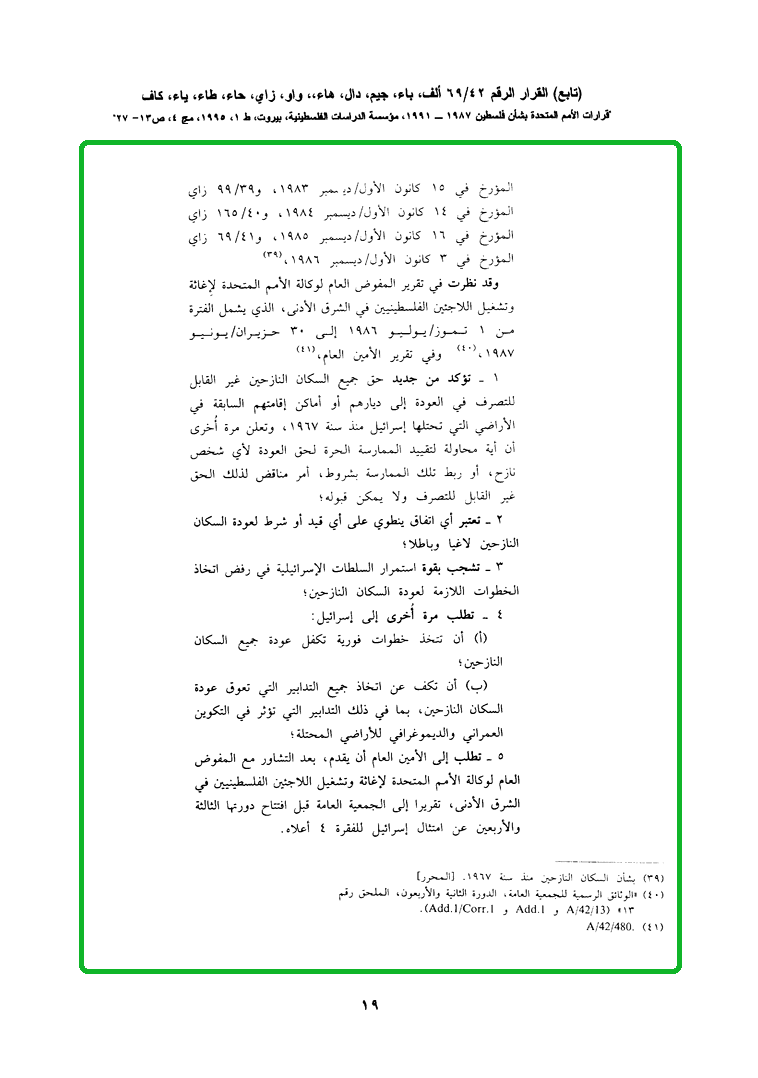 (تابع) القرار الرقم ٦٩/٤٢ ألف، باء، جيم، دال، هاء،، واو، زاي، حاء، طاء، ياء، كاف
"قرارات الأمم المتحدة بشأن فلسطين ١٩٨٧ ــ ١٩٩١، مؤسسة الدراسات الفلسطينية، بيروت، ط ١، ١٩٩٥، مج ٤، ص١٣- ٢٧"
المؤرخ في ١٥ كانون الأول/ديسمبر ١٩٨٣، و٩٩/٣٩ زاي
المؤرخ في ١٤ كانون الأول/ديسمبر ١٩٨٤، و١٦٥/٤٠ زاي
المؤرخ في ١٦ كانون الأول/ديسمبر ١٩٨٥، و٦٩/٤١ زاي
المؤرخ في ٣ كانون الأول/ديسمبر ١٩٨٦،(٣٩)
وقد نظرت في تقرير المفوض العام لوكالة الأمم المتحدة لإغاثة
وتشغيل اللاجئين الفلسطينيين في الشرق الأدنى، الذي يشمل الفترة
من ١ تموز/يوليو ١٩٨٦ إلى ٣٠ حزيران/يونيو
١٩٨٧،(٤٠) وفي تقرير الأمين العام،(٤١)
١ ـ تؤكد من جديد حق جميع السكان النازحين غير القابل
للتصرف في العودة إلى ديارهم أو أماكن إقامتهم السابقة في
الأراضي التي تحتلها إسرائيل منذ سنة ١٩٦٧، وتعلن مرة أُخرى
أن أية محاولة لتقييد الممارسة الحرة لحق العودة لأي شخص
نازح، أو ربط تلك الممارسة بشروط، أمر مناقض لذلك الحق
غير القابل للتصرف ولا يمكن قبوله؛
٢ ـ تعتبر أي اتفاق ينطوي على أي قيد أو شرط لعودة السكان
النازحين لاغيا وباطلا؛
٣ ـ تشجب بقوة استمرار السلطات الإسرائيلية في رفض اتخاذ
الخطوات اللازمة لعودة السكان النازحين؛
٤ ـ تطلب مرة أُخرى إلى إسرائيل:
(أ) أن تتخذ خطوات فورية تكفل عودة جميع السكان
النازحين؛
(ب) أن تكف عن اتخاذ جميع التدابير التي تعوق عودة
السكان النازحين، بما في ذلك التدابير التي تؤثر في التكوين
العمراني والديموغرافي للأراضي المحتلة؛
٥ ـ تطلب إلى الأمين العام أن يقدم، بعد التشاور مع المفوض
العام لوكالة الأمم المتحدة لإغاثة وتشغيل اللاجئين الفلسطينيين في
الشرق الأدنى، تقريرا إلى الجمعية العامة قبل افتتاح دورتها الثالثة
والأربعين عن امتثال إسرائيل للفقرة ٤ أعلاه.
(٣٩) بشأن السكان النازحين منذ سنة ١٩٦٧. [المحرر]
(٤٠) «الوثائق الرسمية للجمعية العامة، الدورة الثانية والأربعون، الملحق رقم
١٣» (A/42/13 و Add.1 و Add.1/Corr.1).
(٤١) A/42/480.
١٩